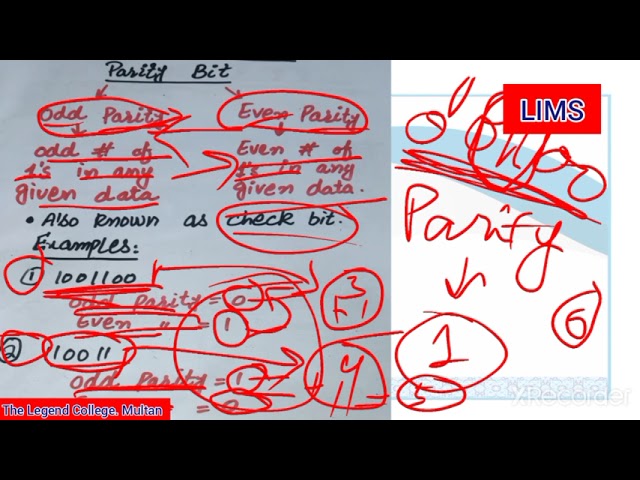 Parity Bit
Odd Parity
Even Parity
odd # of
1's in any
given data
Even # of
1's in any
given data.
• Also known as check bit.
Examples:
① 1001100
odd Parity = 0
Even " = 1
② 10011
odd Parity = 1
= 0
3
4
LIMS
Parity
1
5
6
XRecorder
The Legend College. Multan